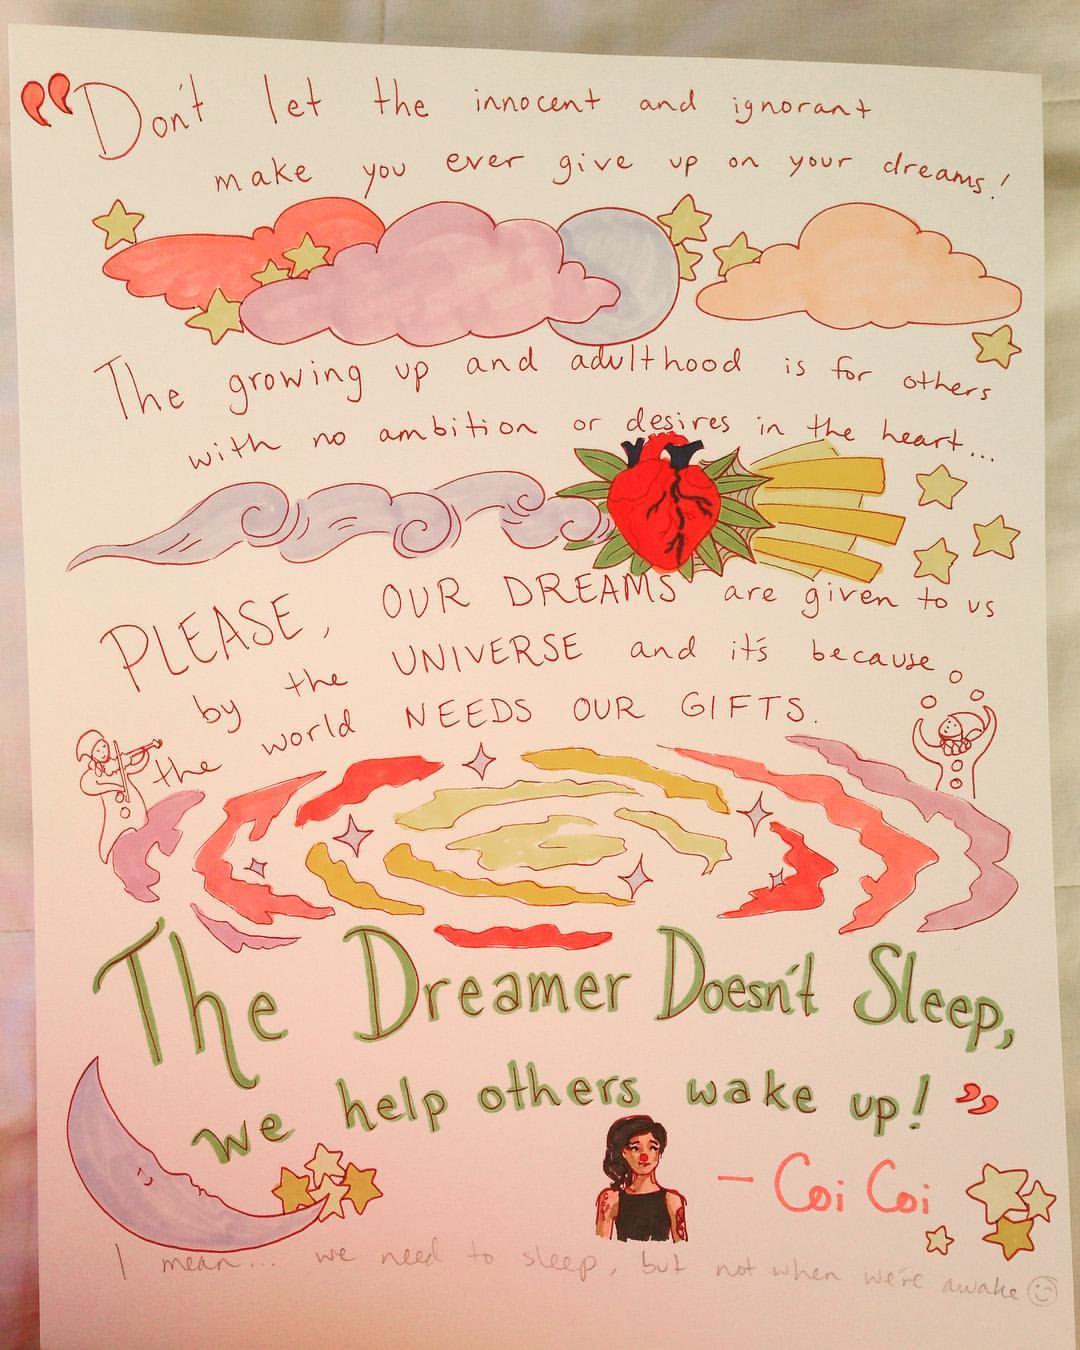 "Don't let the innocent and ignorant
make you ever give up on your dreams!
The growing up and adulthood is for others
with no ambition or desires in the heart...
PLEASE, OUR DREAMS are given to us
by the UNIVERSE and it's because
the world NEEDS OUR GIFTS.
The Dreamer Doesn't Sleep,
we help others wake up!"
- Coi Coi
I mean... we need to sleep, but not when we're awake